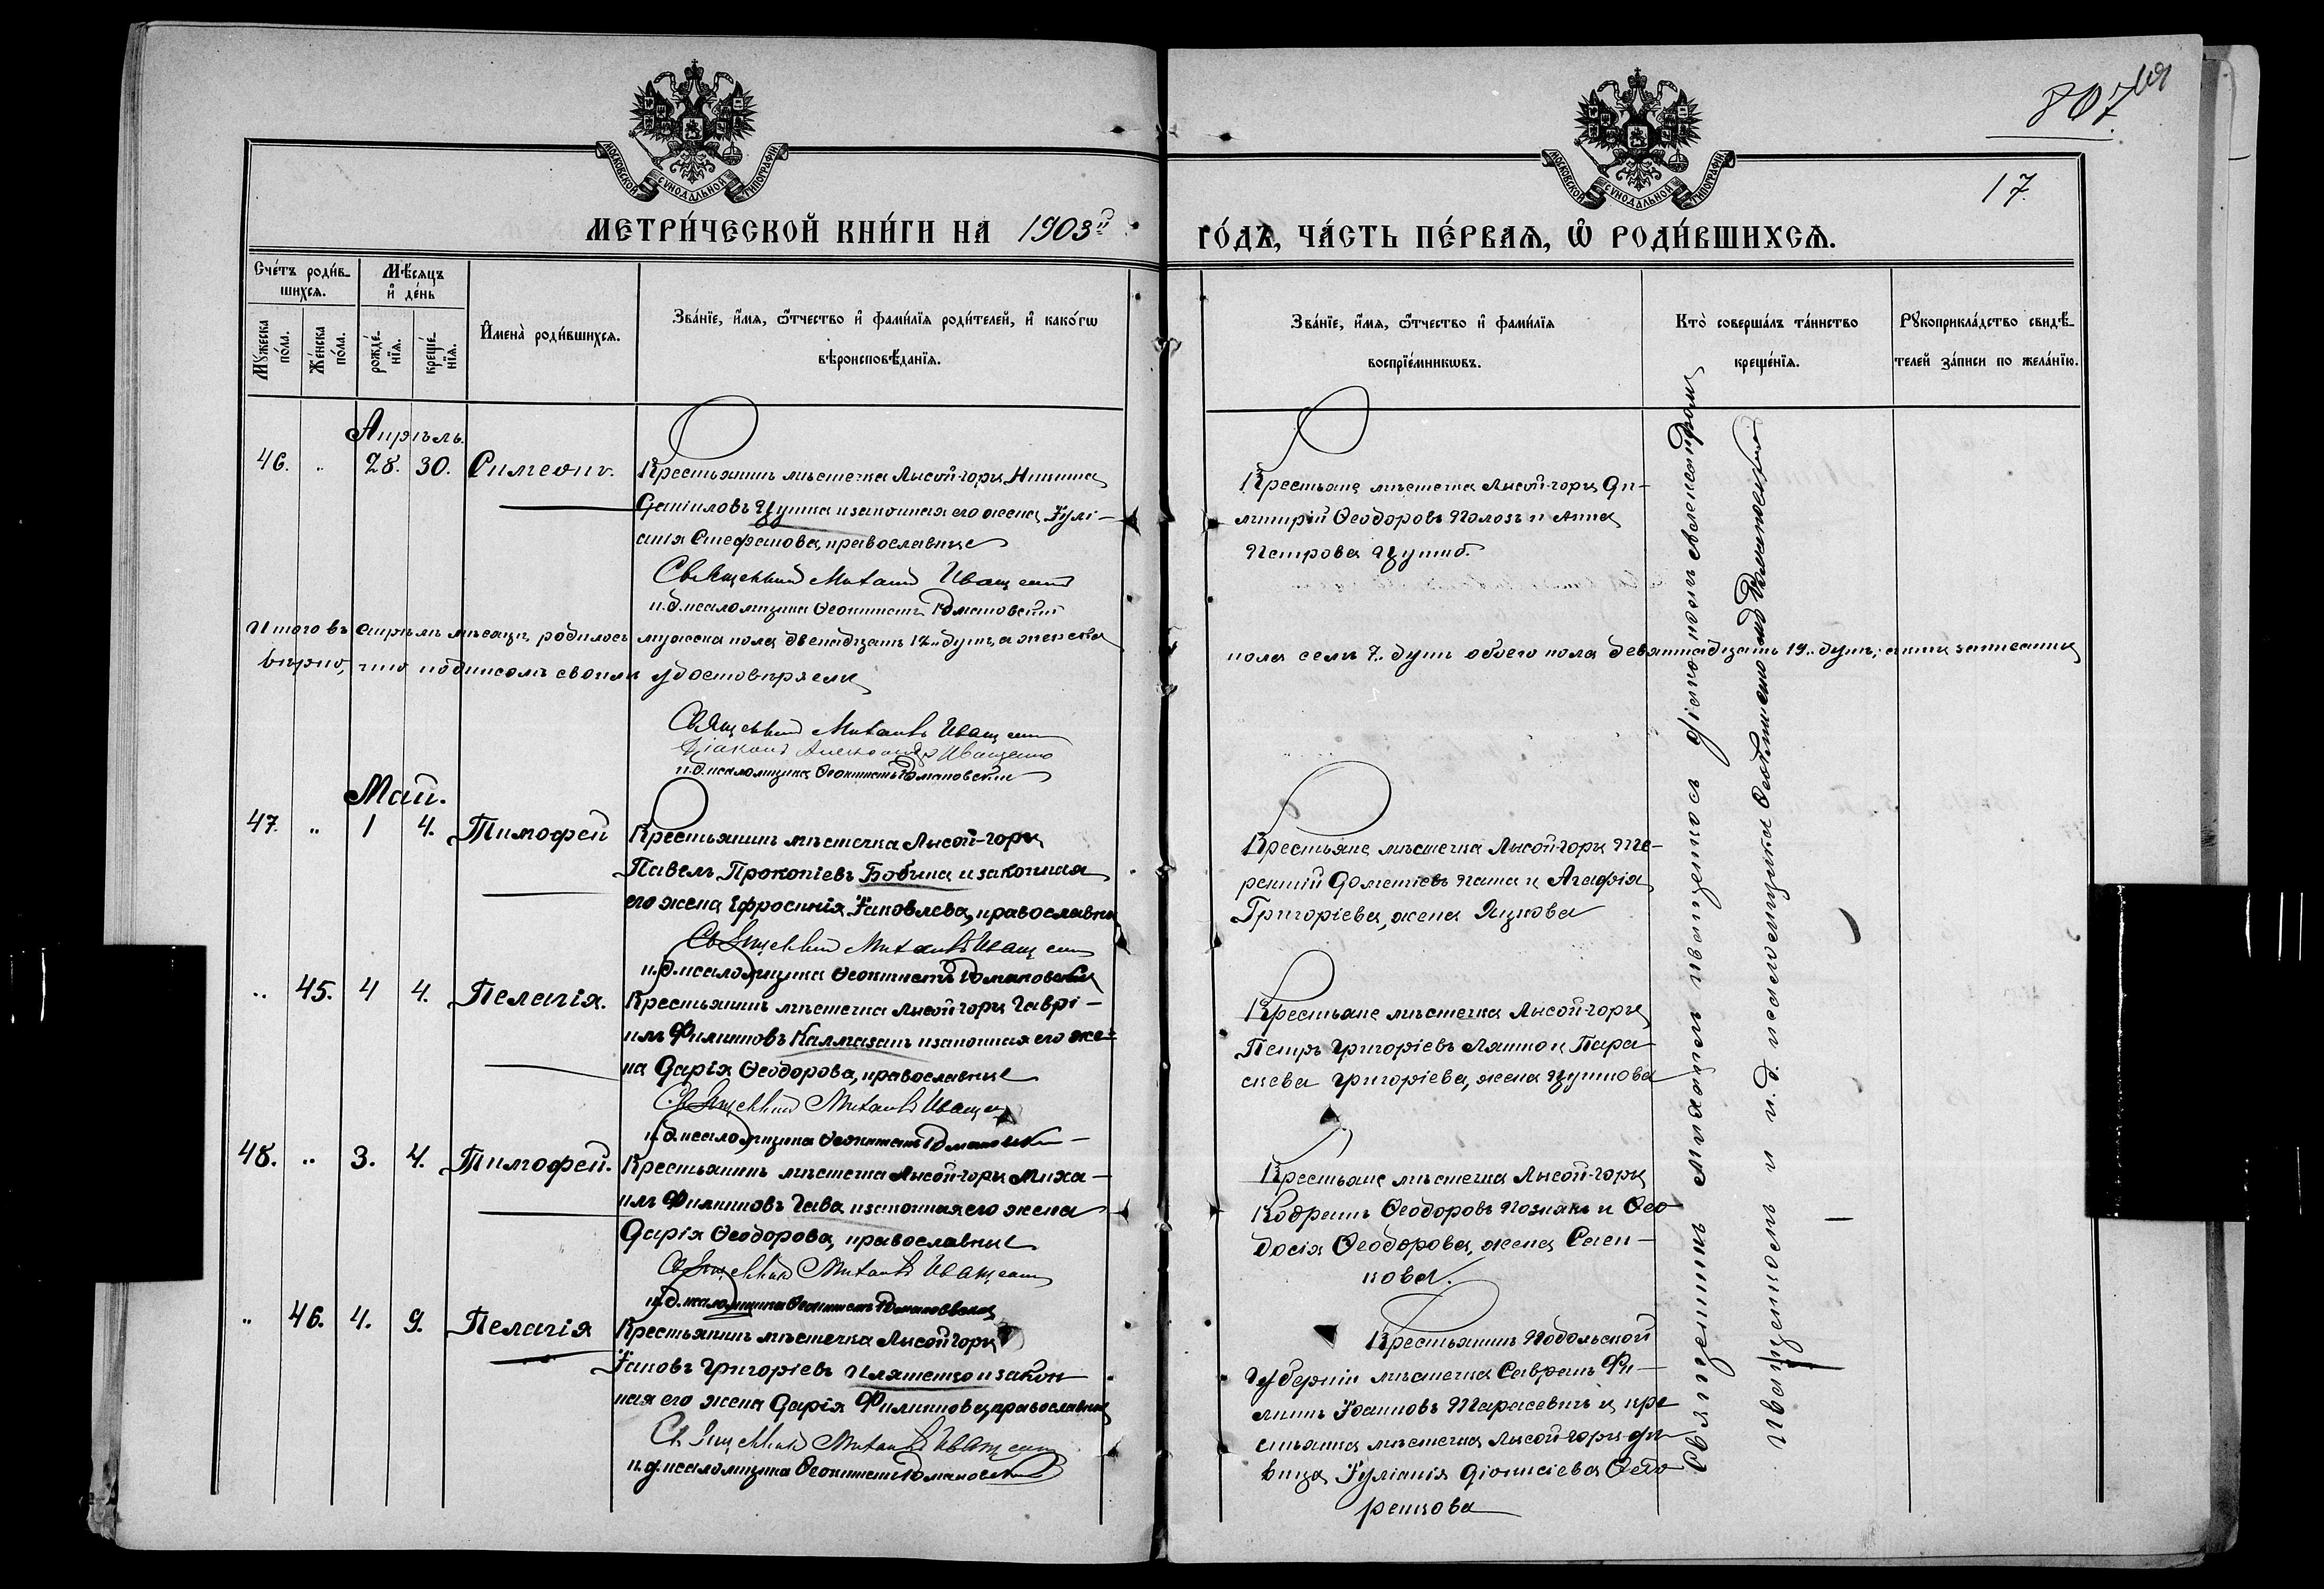 807
17.
МОСКОВСКОЙ СѴНОДАЛЬНОЙ ТИПОГРАФІИ
МОСКОВСКОЙ СѴНОДАЛЬНОЙ ТИПОГРАФІИ
МЕТРИ́ЧЕСКОЙ КНИ́ГИ НА 1903й
ГО́ДЪ, ЧА́СТЬ ПЕ́РВАѦ, Ѡ РОДИ́ВШИХСѦ.
Сче́тъ роди́в-
шихсѧ.
Мѣ́сѧцъ
и҆ де́нь
Мꙋ́жеска по́ла.
Же́нска по́ла.
рожде́нїѧ.
креще́нїѧ.
И҆мена̀ роди́вшихсѧ.
Зва́нїе, и҆́мѧ, ѻ҆́тчество и҆ фами́лїѧ роди́телей, и҆ како́гѡ
вѣроисповѣ́данїѧ.
Зва́нїе, и҆́мѧ, ѻ҆́тчество и҆ фами́лїѧ
воспрїе́мникѡвъ.
Кто̀ соверша́лъ та́инство
креще́нїѧ.
Рꙋкоприкла́дство свидѣ́-
телей за́писи по жела́нїю.
Апрѣль.
46. „ 28. 30. Симеонъ.
Крестьянинъ мѣстечка Лысой-горы Никита
Даніиловъ Цушка и законная его жена Іулі-
анія Стефанова, православные
Священникъ Михаилъ Иващенко
и.д. псаломщика Ѳеоктистъ Романовскій
Крестьяне мѣстечка Лысой-горы Ди-
митрій Ѳеодоровъ Полозъ и Анна
Петрова
Итого въ апрѣлѣ мѣсяцѣ родилось мужеска пола двенадцать 12„ душъ, а женска
пола семь 7„ душъ обоего пола девятнадцать 19„ душъ; акты записаны
вѣрно, что подписомъ своимъ удостовѣряемъ
Священникъ Михаилъ Иващенко
Діаконъ Александръ Иващенко
и.д. псаломщика Ѳеоктистъ Романовскій
Май.
47. „ 1 4. Тимофей
Крестьянинъ мѣстечка Лысой-горы
Павелъ Прокопіевъ Бобына и законная
его жена Ефросинія Іаковлева, православные
Священникъ Михаилъ Иващенко
и.д. псаломщика Ѳеоктистъ Романовскій
Крестьяне мѣстечка Лысой-горы Те-
рентій Дометіевъ Паша и Агафія
Григоріева, жена Яцкова
„ 45. 4 4. Пелагія.
Крестьянинъ мѣстечка Лысой-горы Гаврі-
илъ Филиповъ Калмазанъ и законная его же-
на Дарія Ѳеодорова, православные
Священникъ Михаилъ Иващенко
и.д. псаломщика Ѳеоктистъ Романовскій
Крестьяне мѣстечка Лысой-горы
Петръ Григоріевъ Ляшко и Пара-
скева Григоріева, жена Цушкова
48. „ 3. 4. Тимофей.
Крестьянинъ мѣстечка Лысой-горы Миха-
илъ Филиповъ Гава и законная его жена
Дарія Ѳеодорова, православные
Священникъ Михаилъ Иващенко
и.д. псаломщика Ѳеоктистъ Романовскій
Крестьяне мѣстечка Лысой-горы
Кодратъ Ѳеодоровъ Познякъ и Ѳео-
досія Ѳеодорова, жена Саен-
кова.
„ 46. 4. 9. Пелагія
Крестьянинъ мѣстечка Лысой горы
Іаковъ Григоріевъ Иляшенко и закон-
ная его жена Дарія Филипова, православные
Священникъ Михаилъ Иващенко
и.д. псаломщика Ѳеоктистъ Романовскій
Крестьянинъ Подольской
губерніи мѣстечка Саврань Фи-
липъ Іоанновъ Тарасевичъ и кре-
стьянка мѣстечка Лысой-горы дѣ-
вица Іуліанія Діонисіева
Священникъ Михаилъ Иващенко съ діакономъ Александромъ
Иващенкомъ и и.д. псаломщика Ѳеоктистомъ Романовскимъ